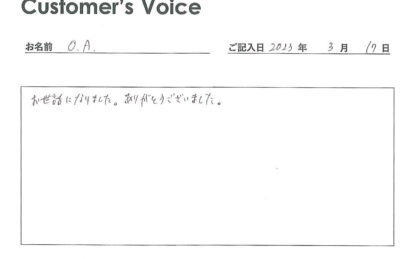 Customer's Voice
お名前 O.A. ご記入日 2023 年 3 月 17 日
お世話になりました。ありがとうございました。